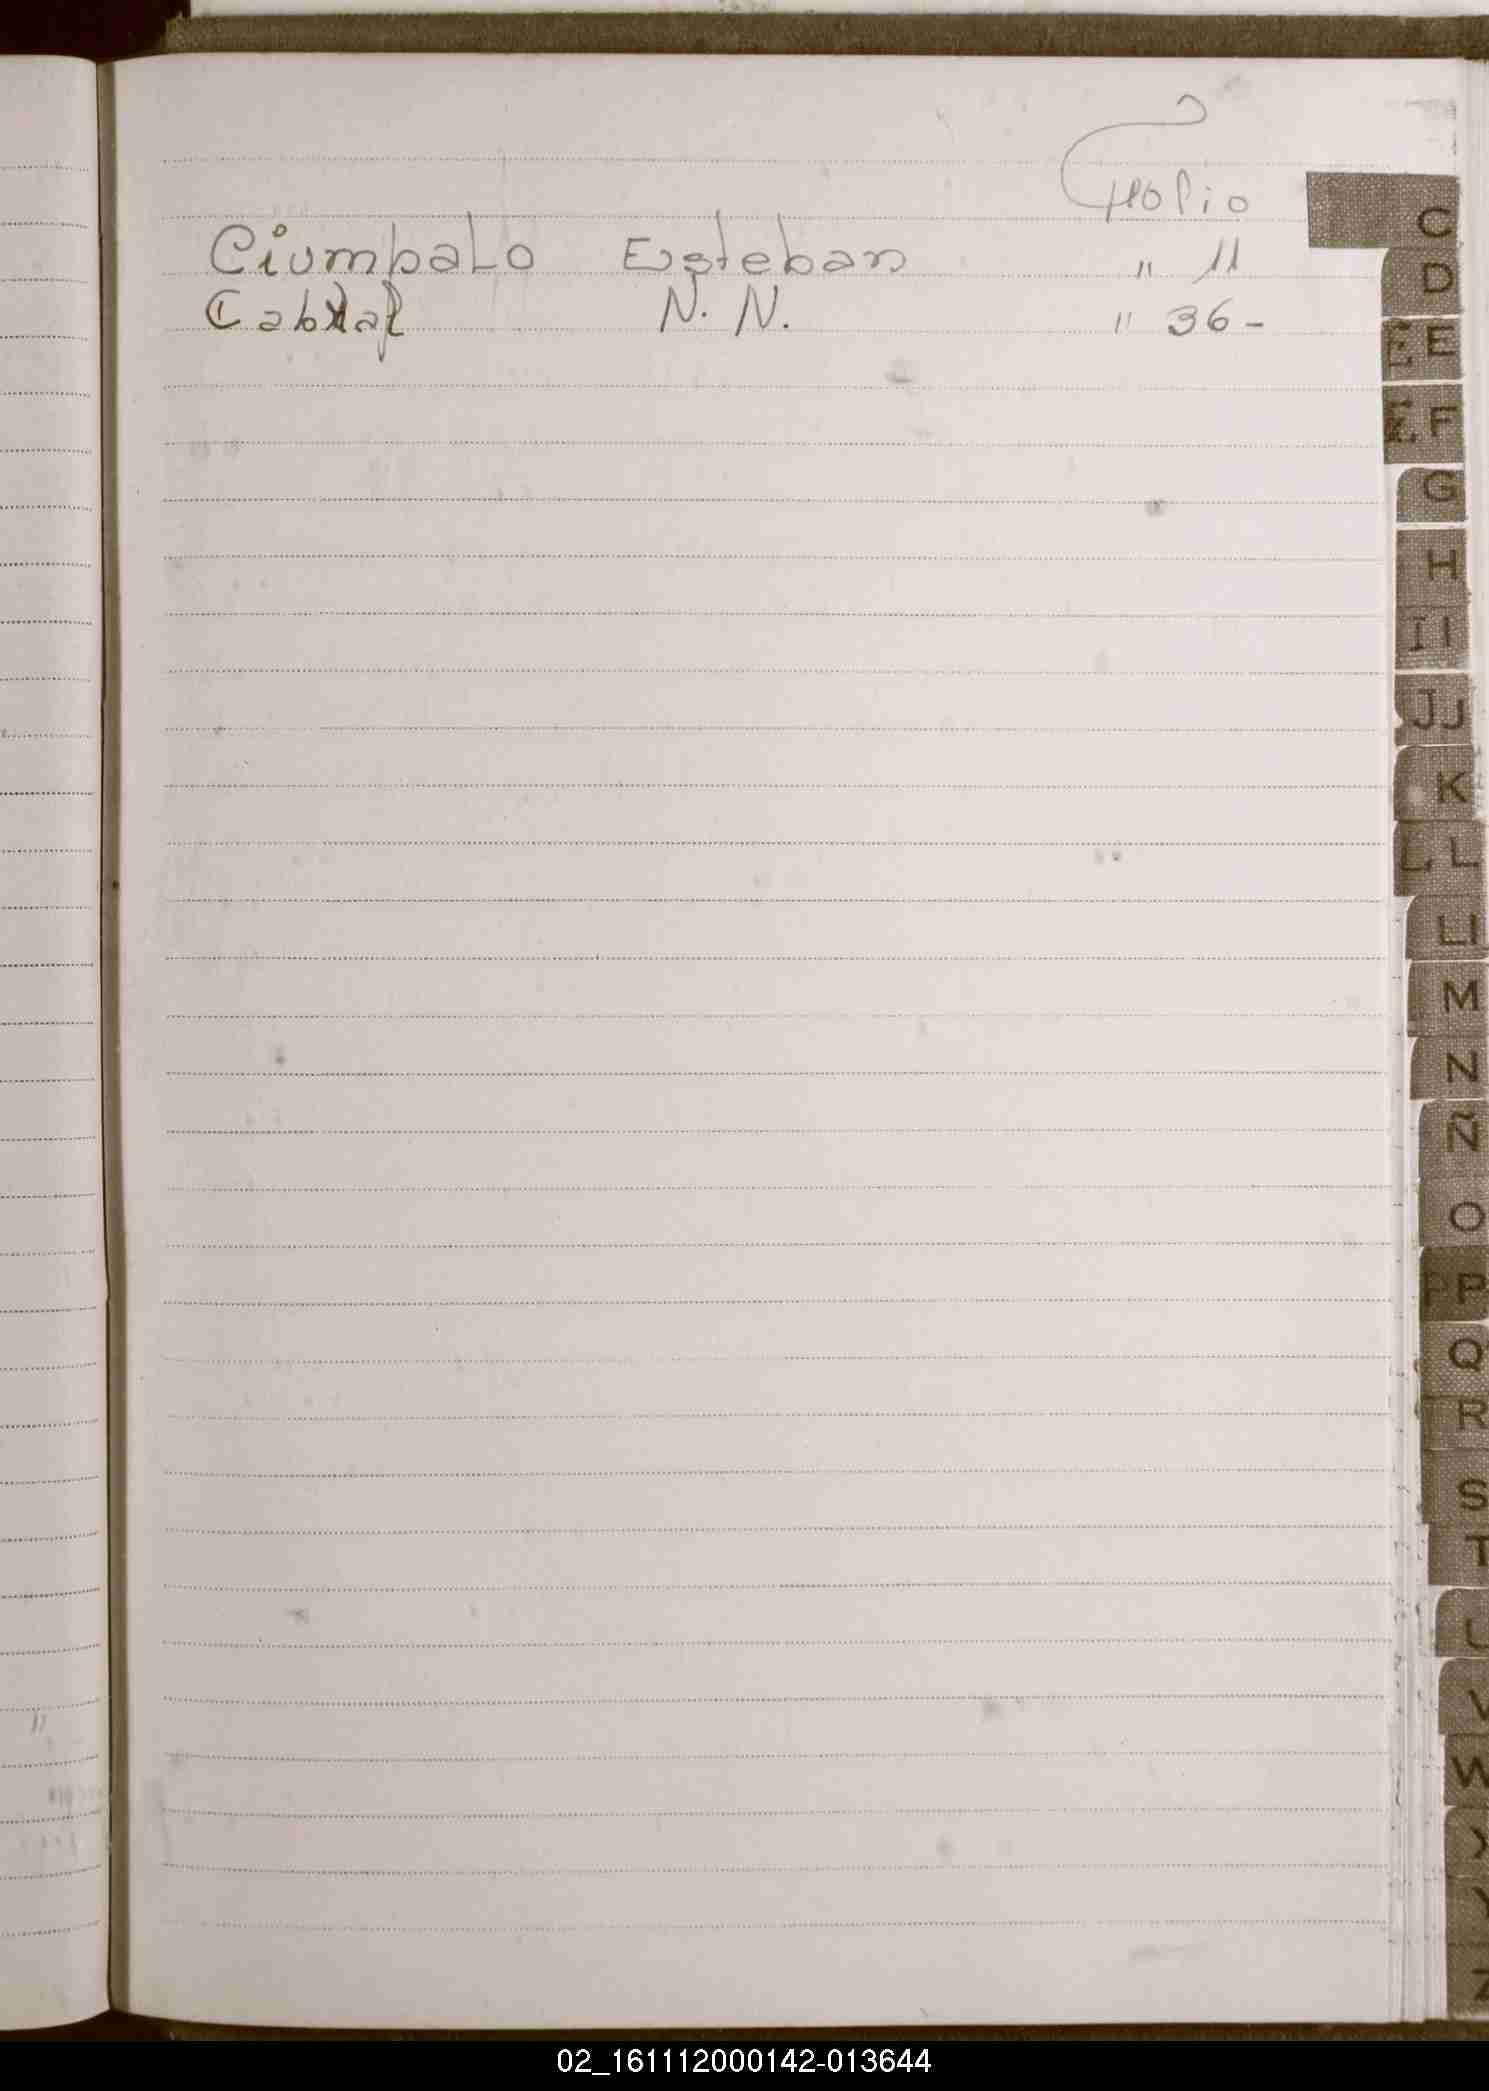 Folio
Ciumpalo Esteban " 11
Cabral N. N. " 36-
C
D
E E
E F
G
H
I I
J J
K
L L
Ll
M
N
Ñ
O
P P
Q
R
S
T
U
V
W
X
Y
Z
02_161112000142-013644